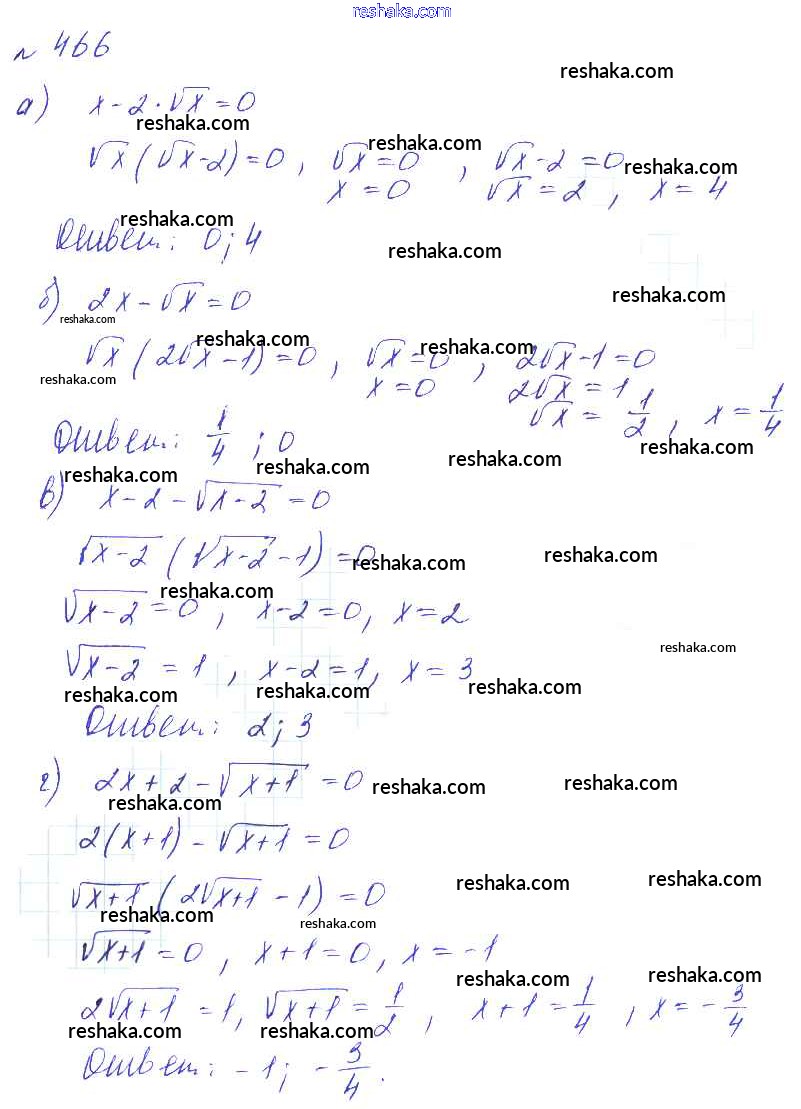 reshaka.com
№ 466
reshaka.com
а) x - 2·√x = 0
reshaka.com
reshaka.com
√x (√x - 2) = 0, √x = 0, √x - 2 = 0
reshaka.com
x = 0 √x = 2, x = 4
reshaka.com
Ответ: 0; 4
reshaka.com
reshaka.com
б) 2x - √x = 0
reshaka.com
reshaka.com reshaka.com
√x (2√x - 1) = 0, √x = 0, 2√x - 1 = 0
reshaka.com
x = 0 2√x = 1
√x = 1/2, x = 1/4
Ответ: 1/4; 0
reshaka.com
reshaka.com reshaka.com reshaka.com
в) x - 2 - √(x-2) = 0
√(x-2) (√(x-2) - 1) = 0
reshaka.com reshaka.com
reshaka.com
√(x-2) = 0, x - 2 = 0, x = 2
reshaka.com
√(x-2) = 1, x - 2 = 1, x = 3
reshaka.com reshaka.com reshaka.com
Ответ: 2; 3
г) 2x + 2 - √(x+1) = 0
reshaka.com reshaka.com
reshaka.com
2(x+1) - √(x+1) = 0
√(x+1) (2√(x+1) - 1) = 0
reshaka.com reshaka.com
reshaka.com reshaka.com
√(x+1) = 0, x + 1 = 0, x = -1
reshaka.com reshaka.com
2√(x+1) = 1, √(x+1) = 1/2, x + 1 = 1/4, x = -3/4
reshaka.com reshaka.com reshaka.com reshaka.com
Ответ: -1; -3/4.